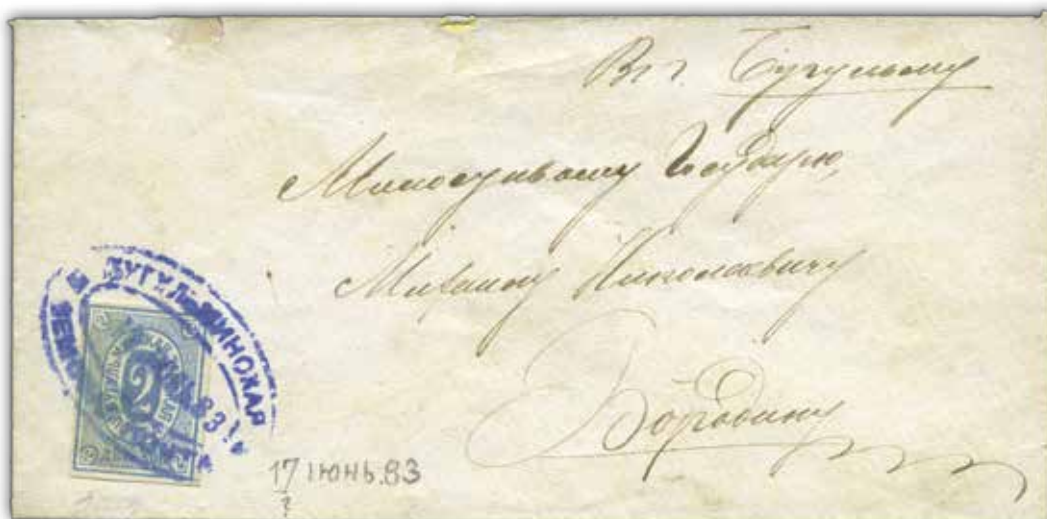 Въ г. Бугульму
Милостивому Государю,
Михаилу Николаевичу
Бородину
БУГУЛЬМИНСКАЯ
2
17 ІЮНЬ.83
?